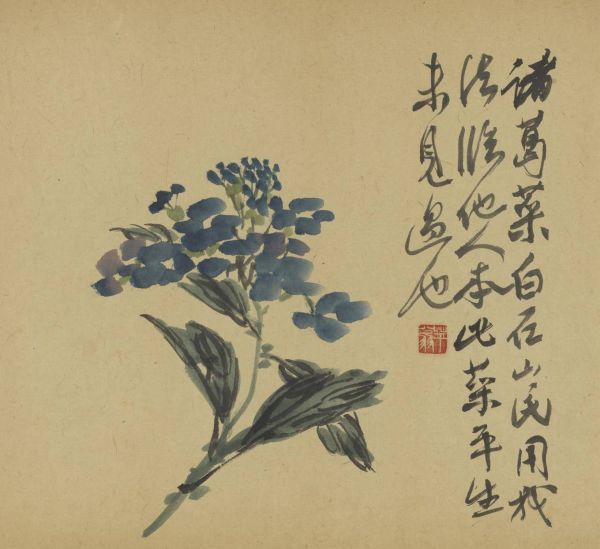 諸葛菜白石山民用我
法臨他人本此菜平生
未見過也